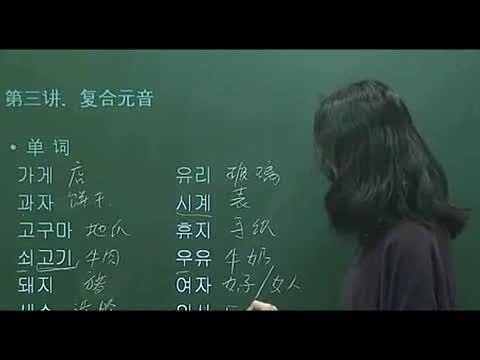 第三讲. 复合元音
• 单词
가게 店 유리 玻璃
과자 饼干 시계 表
고구마 地瓜 휴지 手纸
쇠고기 牛肉 우유 牛奶
돼지 猪 여자 女子/女人